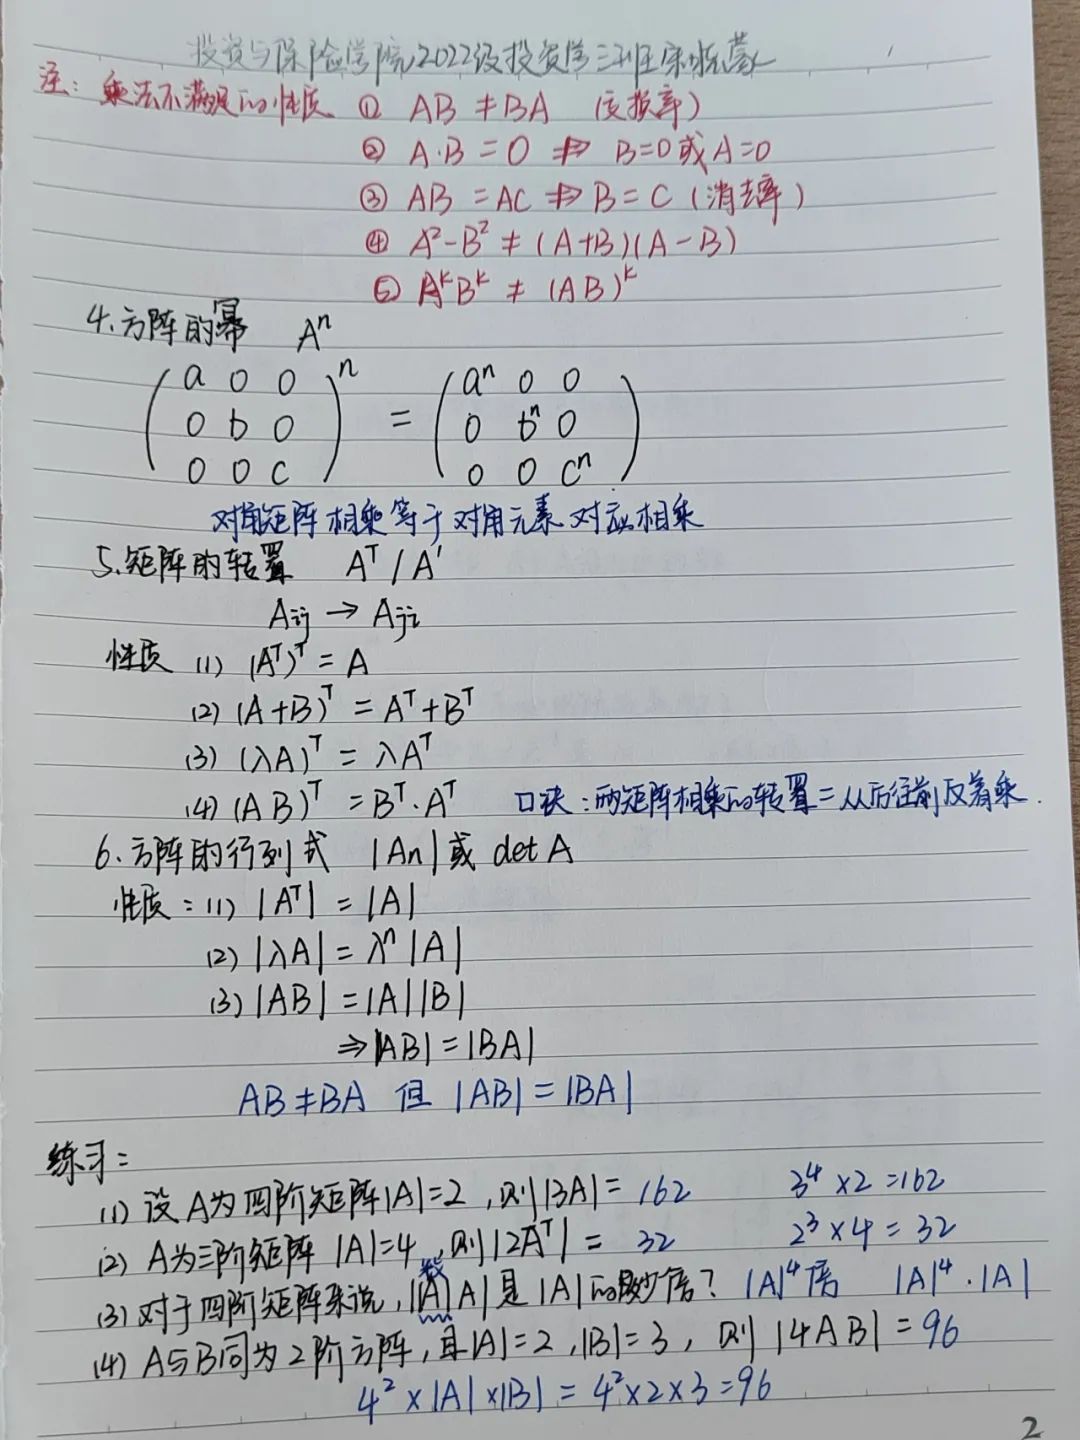 投资与保险学院2022级投资学三班
注: 乘法不满足的性质 ① AB ≠ BA (交换率)
② A·B = 0 ⇏ B=0或A=0
③ AB = AC ⇏ B = C (消去率)
④ A²-B² ≠ (A+B)(A-B)
⑤ AᵏBᵏ ≠ (AB)ᵏ
4.方阵的幂 Aⁿ
( a 0 0 )ⁿ ( aⁿ 0 0 )
( 0 b 0 ) = ( 0 bⁿ 0 )
( 0 0 c ) ( 0 0 cⁿ )
对角矩阵相乘等于对角元素对应相乘
5.矩阵的转置 Aᵀ / A'
Aij → Aji
性质 (1) (Aᵀ)ᵀ = A
(2) (A+B)ᵀ = Aᵀ+Bᵀ
(3) (λA)ᵀ = λAᵀ
(4) (AB)ᵀ = Bᵀ·Aᵀ 口诀:两矩阵相乘的转置=从后往前反着乘.
6.方阵的行列式 |An|或 det A
性质:(1) |Aᵀ| = |A|
(2) |λA| = λⁿ|A|
(3) |AB| = |A||B|
⇒|AB| = |BA|
AB≠BA 但 |AB| = |BA|
练习:
(1) 设A为四阶矩阵|A|=2,则|3A|= 162 3⁴×2=162
(2) A为三阶矩阵 |A|=4,则|2Aᵀ| = 32 2³×4=32
数
(3) 对于四阶矩阵来说,||A|A|是|A|的多少倍? |A|⁴倍 |A|⁴·|A|
(4) A与B同为2阶方阵,且|A|=2,|B|=3, 则 |4AB| = 96
4²×|A|×|B| = 4²×2×3=96
2